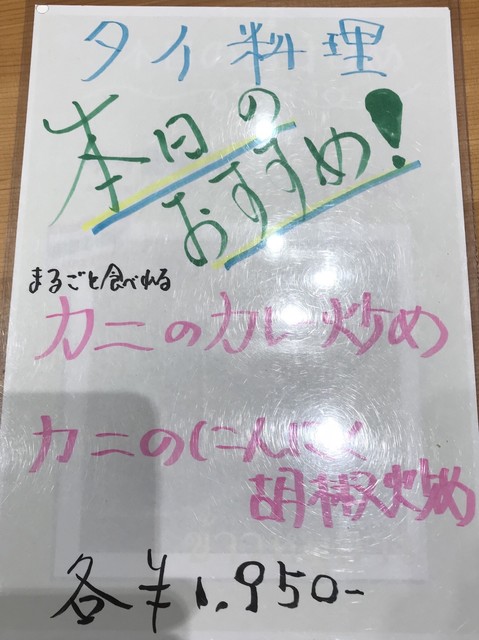 タイ料理
本日の
おすすめ!
まるごと食べれる
カニのカレー炒め
カニのにんにく
胡椒炒め
各¥1,950-